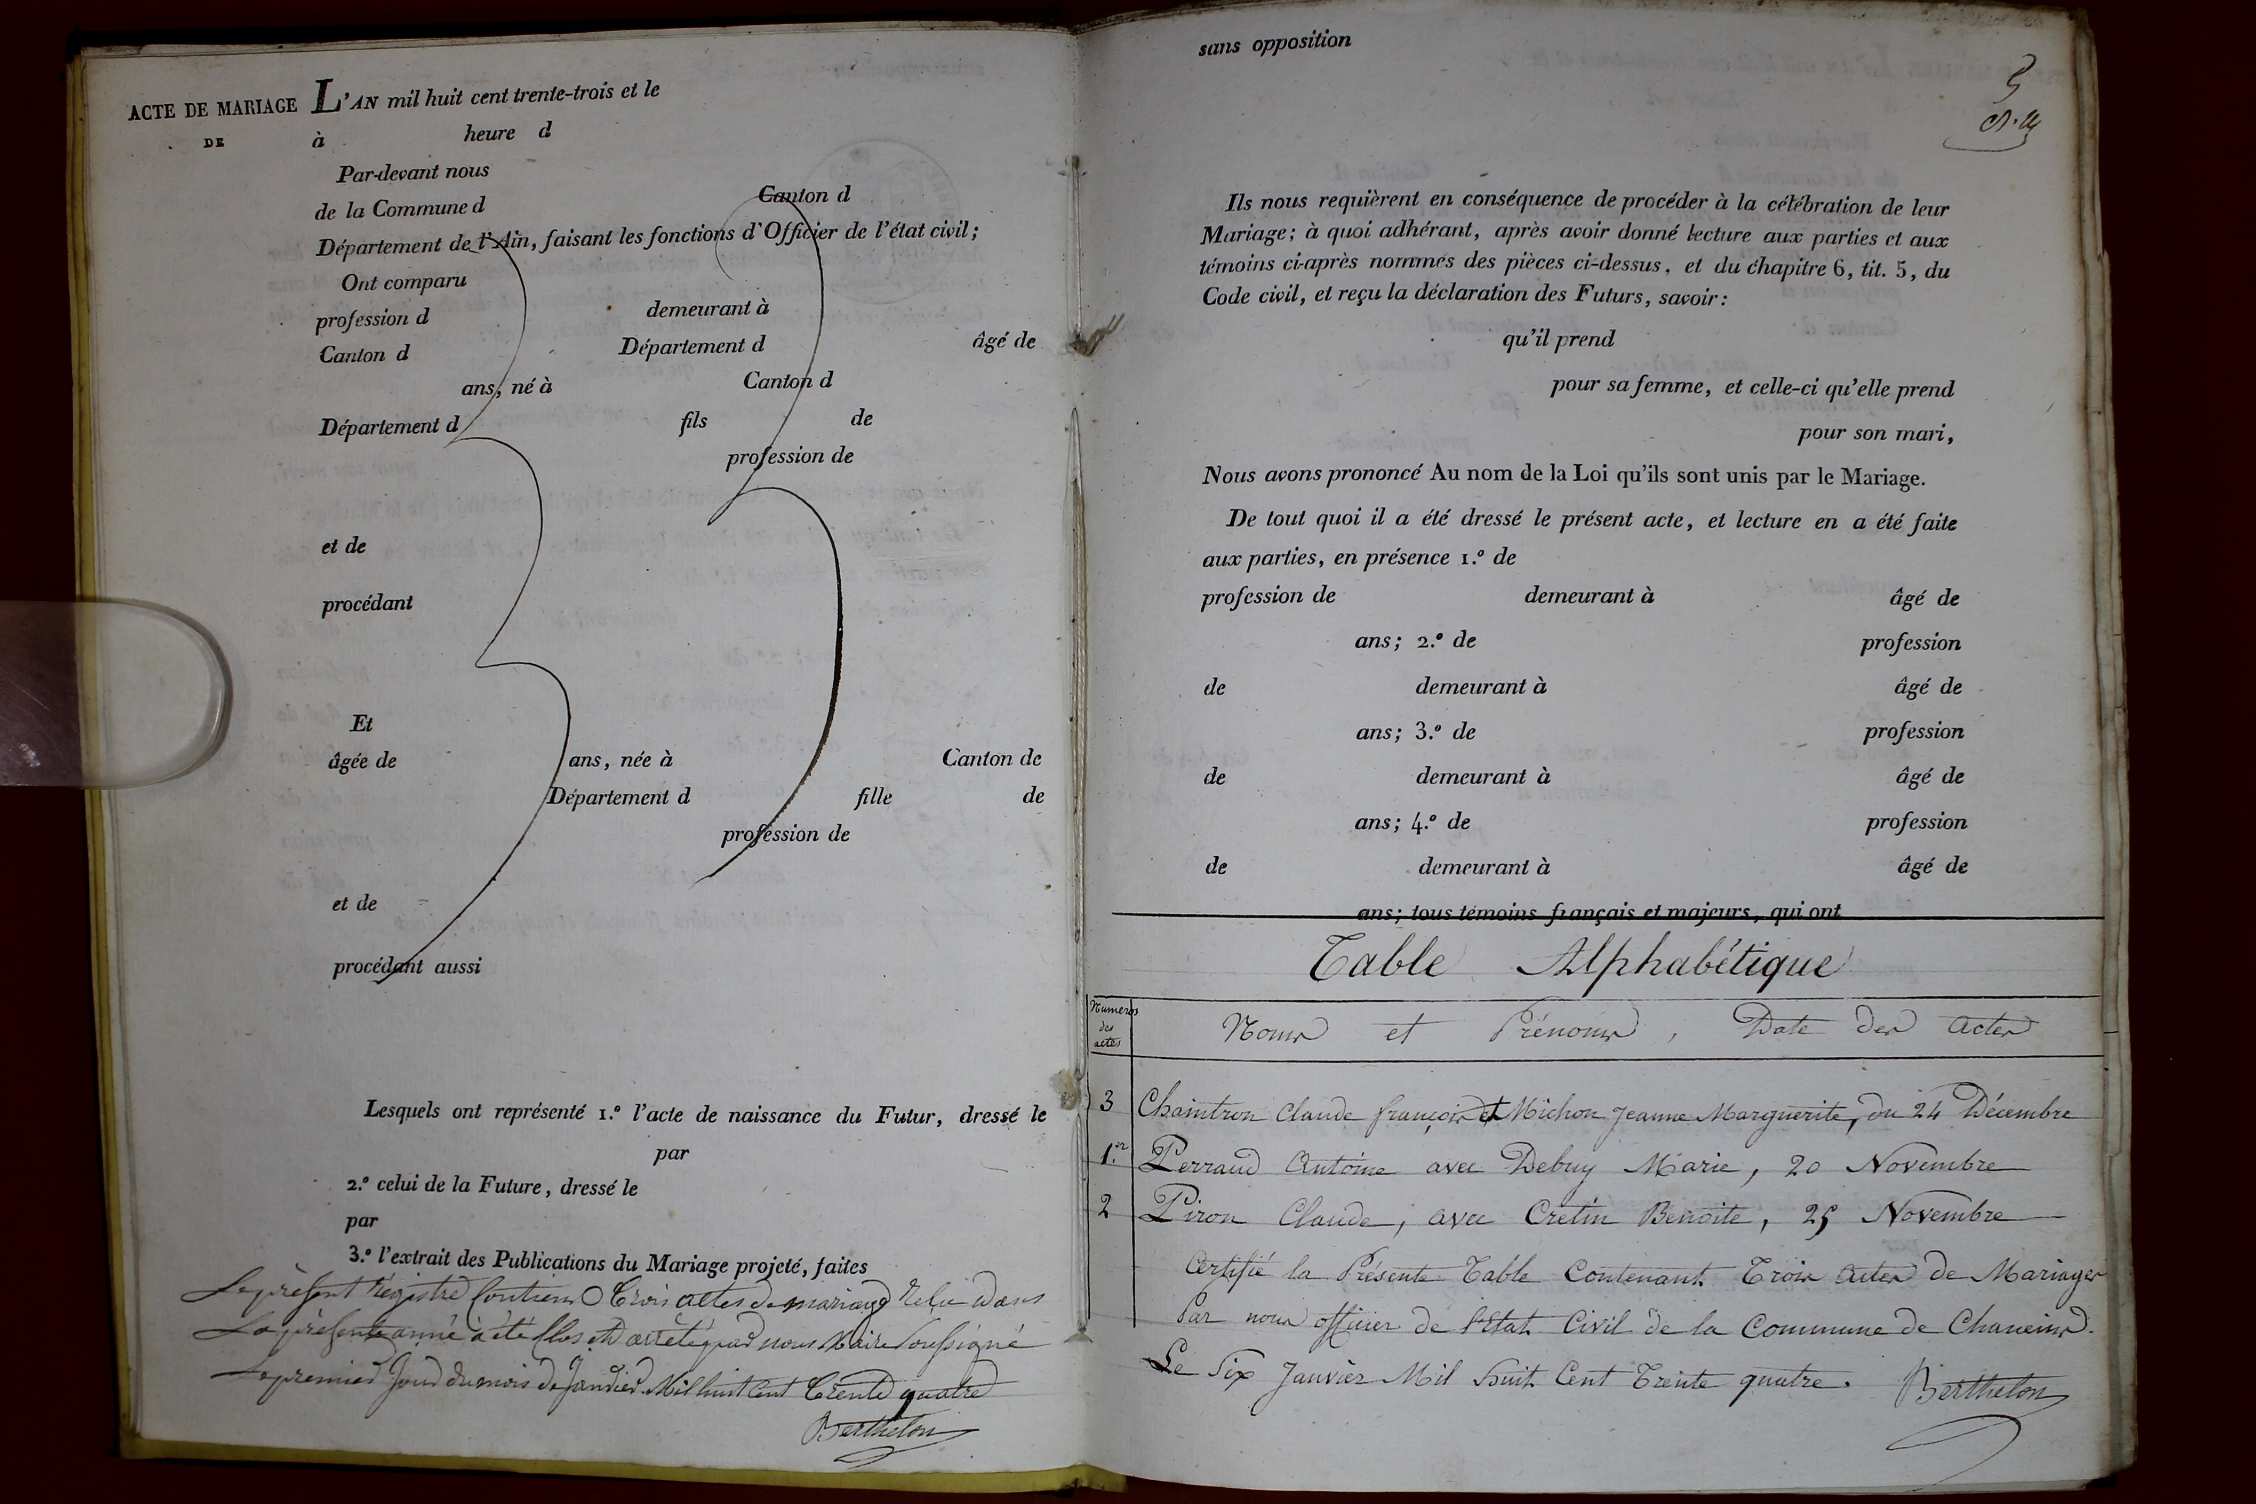 ACTE DE MARIAGE L'AN mil huit cent trente-trois et le
DE à heure d
Par-devant nous
de la Commune d Canton d
Département de l'Ain, faisant les fonctions d'Officier de l'état civil;
Ont comparu
profession d demeurant à
Canton d Département d âgé de
ans, né à Canton d
Département d fils de
profession de
et de
procédant
Et
âgée de ans, née à Canton de
Département d fille de
profession de
et de
procédant aussi
Lesquels ont représenté 1.º l'acte de naissance du Futur, dressé le
par
2.º celui de la Future, dressé le
par
3.º l'extrait des Publications du Mariage projeté, faites
Le présent Régistre Contien Trois actes de mariage dans
La présente anné à été Clos et arrêté par nous Maire Soussigné
Le premier Jour du mois de Janvier Mil huit Cent Trente quatre
Berthelon
sans opposition
5
Ils nous requièrent en conséquence de procéder à la célébration de leur
Mariage; à quoi adhérant, après avoir donné lecture aux parties et aux
témoins ci-après nommés des pièces ci-dessus, et du chapitre 6, tit. 5, du
Code civil, et reçu la déclaration des Futurs, savoir:
qu'il prend
pour sa femme, et celle-ci qu'elle prend
pour son mari,
Nous avons prononcé Au nom de la Loi qu'ils sont unis par le Mariage.
De tout quoi il a été dressé le présent acte, et lecture en a été faite
aux parties, en présence 1.º de
profession de demeurant à âgé de
ans; 2.º de profession
de demeurant à âgé de
ans; 3.º de profession
de demeurant à âgé de
ans; 4.º de profession
de demeurant à âgé de
ans; tous témoins français et majeurs, qui ont
Table Alphabétique
Numeros
des
actes
Noms et Prénoms, Date des Actes
3 Chaintron Claude françois et Michon Jeanne Marguerite, du 24 Décembre
1.er Perraud Antoine avec Debuy Marie, 20 Novembre
2 Piron Claude, avec Cretin Benoite, 25 Novembre
Certifié la Présente Table Contenant Trois Actes de Mariages
Par nous officier de l'Etat Civil de la Commune de Chaneins.
Le Six Janvier Mil huit Cent Trente quatre. Berthelon